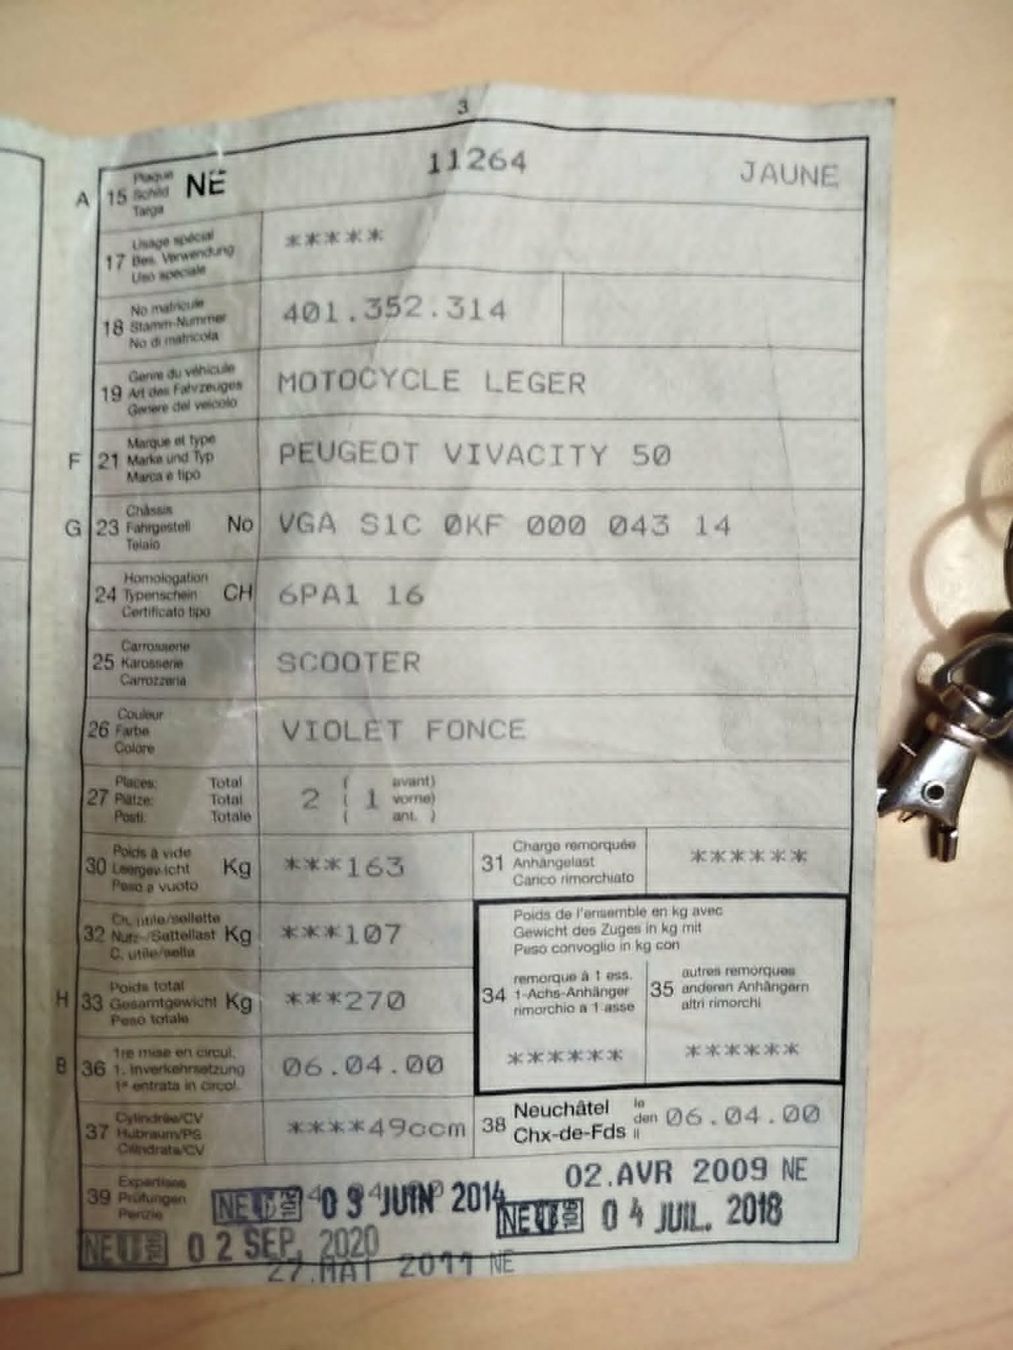 3
A 15 Plaque Schild Targa NE 11264 JAUNE
17 Usage spécial Bes. Verwendung Uso speciale *****
18 No matricule Stamm-Nummer No di matricola 401.352.314
19 Genre du véhicule Art des Fahrzeuges Genere del veicolo MOTOCYCLE LEGER
F 21 Marque et type Marke und Typ Marca e tipo PEUGEOT VIVACITY 50
G 23 Châssis Fahrgestell Telaio No VGA S1C 0KF 000 043 14
24 Homologation Typenschein Certificato tipo CH 6PA1 16
25 Carrosserie Karosserie Carrozzeria SCOOTER
26 Couleur Farbe Colore VIOLET FONCE
27 Places: Total Plätze: Total Posti: Totale 2 ( 1 avant) ( vorne) ( ant. )
30 Poids à vide Leergewicht Peso a vuoto Kg ***163
31 Charge remorquée Anhängelast Carico rimorchiato ******
32 Ch. utile/sellette Nutz-/Sattellast C. utile/sella Kg ***107
Poids de l'ensemble en kg avec
Gewicht des Zuges in kg mit
Peso convoglio in kg con
H 33 Poids total Gesamtgewicht Peso totale Kg ***270
34 remorque à 1 ess. 1-Achs-Anhänger rimorchio a 1 asse ******
35 autres remorques anderen Anhängern altri rimorchi ******
B 36 1re mise en circul. 1. Inverkehrsetzung 1ª entrata in circol. 06.04.00
37 Cylindrée/CV Hubraum/PS Cilindrata/CV ****49ccm
38 Neuchâtel Chx-de-Fds le den il 06.04.00
39 Expertises Prüfungen Perizie
02.AVR 2009 NE
NE 09 JUIN 2014
NE 04 JUIL. 2018
NE 02 SEP. 2020
27.MAI 2011 NE